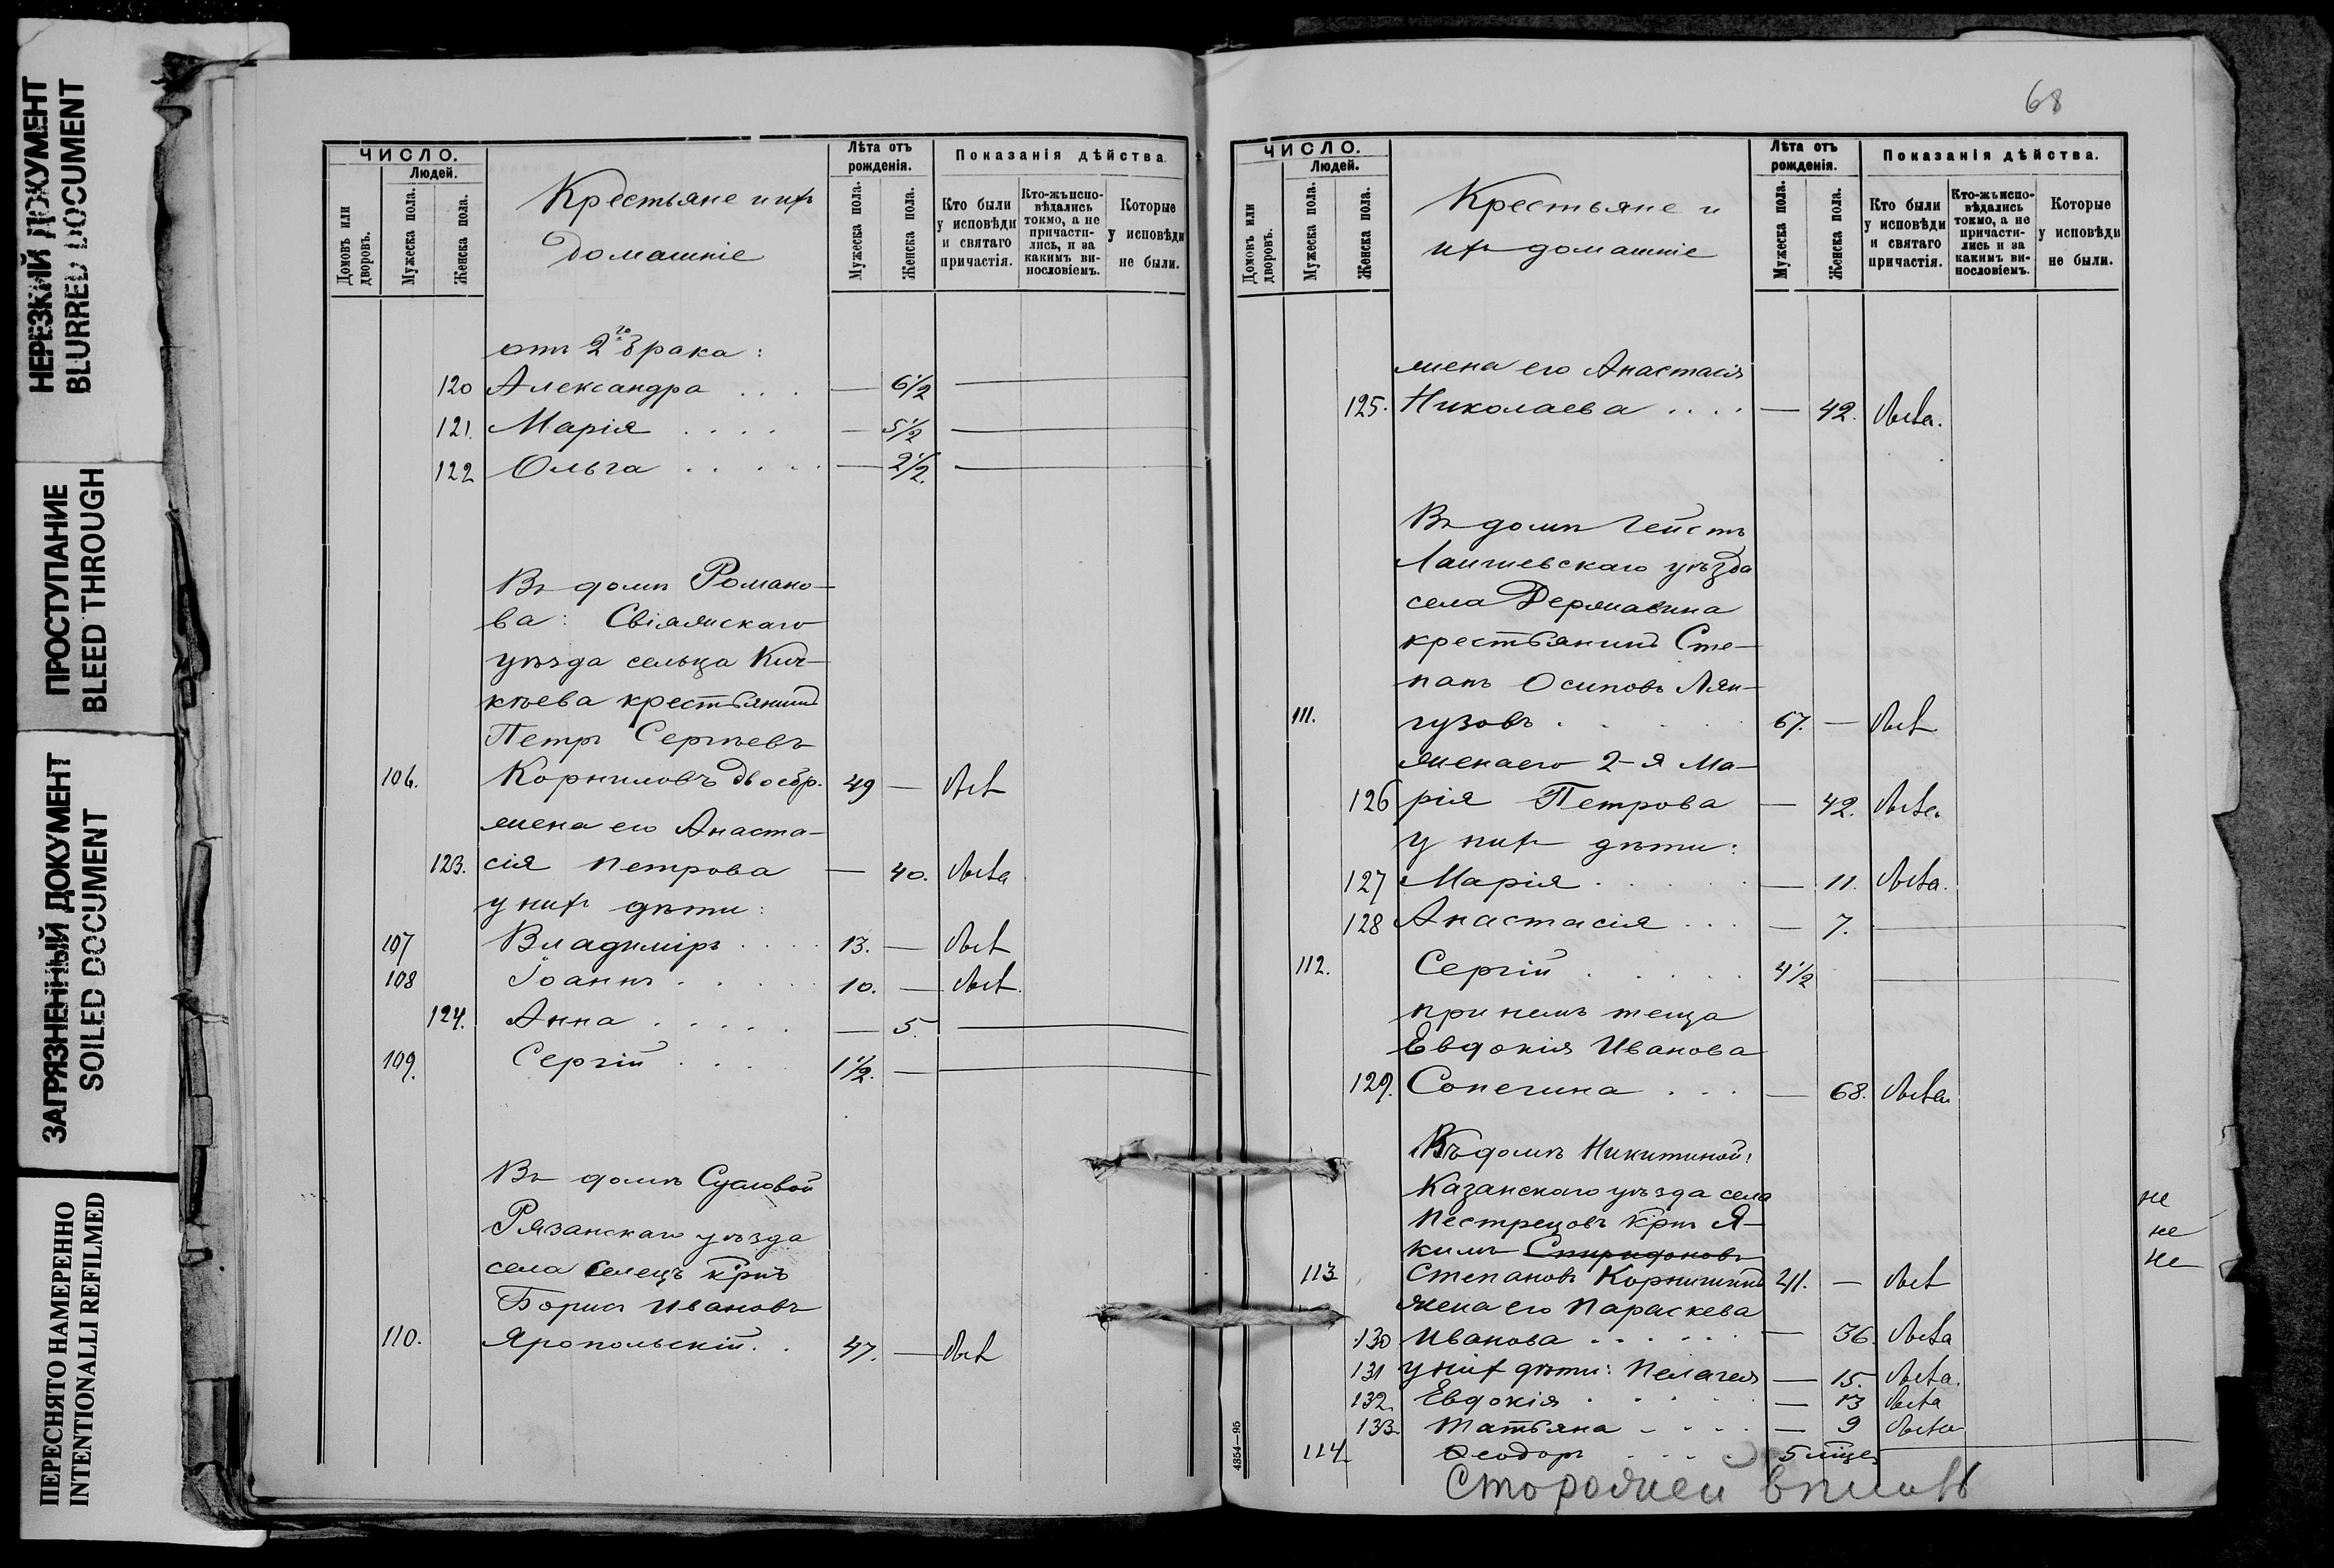 НЕРЕЗКИЙ ДОКУМЕНТ
BLURRED DOCUMENT
ПРОСТУПАНИЕ
BLEED THROUGH
ЗАГРЯЗНЕННЫЙ ДОКУМЕНТ
SOILED DOCUMENT
ПЕРЕСНЯТО НАМЕРЕННО
INTENTIONALLI REFILMED
ЧИСЛО.
Людей.
Домовъ или дворовъ.
Мужеска пола.
Женска пола.
Крестьяне и ихъ
домашніе
Лѣта отъ рожденія.
Мужеска пола.
Женска пола.
Показанія дѣйства
Кто были у исповѣди и святаго причастія.
Кто-жъ испо-вѣдались токмо, а не причасти-лись, и за какимъ ви-нословіемъ.
Которые у исповѣди не были.
отъ 2го брака:
120 Александра . . . — 6½ —
121. Марія . . . . — 5½ —
122 Ольга . . . . . — 2½. —
Въ домѣ Романо-
ва: Свіяжскаго
уѣзда сельца Кич-
кѣева крестьянинъ
Петръ Сергѣевъ
106. Корниловъ 49 —
жена его Анаста-
123. сія Петрова — 40.
у нихъ дѣти:
107 Владиміръ . . . . 13. —
108 Іоаннъ . . . . . 10. —
124. Анна . . . . . — 5. —
109. Сергій . . . . 1½. —
Въ домѣ Сусловой
Рязанскаго уѣзда
села Селецъ крнъ
Борисъ Ивановъ
110. Яропольскій . . 47. —
68
ЧИСЛО.
Людей.
Домовъ или дворовъ.
Мужеска пола.
Женска пола.
Крестьяне и
ихъ домашніе
Лѣта отъ рожденія.
Мужеска пола.
Женска пола.
Показанія дѣйства.
Кто были у исповѣди и святаго причастія.
Кто-жъ испо-вѣдались токмо, а не причасти-лись и за какимъ ви-нословіемъ.
Которые у исповѣди не были.
жена его Анастасія
125. Николаева . . . . — 42.
Въ домѣ Гейстъ
Лаишевскаго уѣзда
села Державина
крестьянинъ Сте-
панъ Осиповъ Лян-
111. гузовъ . . . . . 67. —
жена его 2-я Ма-
126 рія Петрова — 42.
у нихъ дѣти:
127 Марія . . . . . — 11.
128 Анастасія . . . — 7. —
112. Сергій . . . . . 4½ —
при немъ теща
Евдокія Иванова
129. Сопегина . . . — 68.
Въ домѣ Никитиной:
Казанскаго уѣзда села
Пестрецовъ крнъ Я-
кимъ Спиридоновъ
113 Степановъ 41. —
жена его Параскева
130 Иванова . . . . . . — 36.
131 у нихъ дѣти: Пелагея — 15.
132. Евдокія . . . . . — 13
133. Татьяна . . . . — 9
114 Ѳеодоръ . . . 5 мѣц. —
не
не
не
4354—95